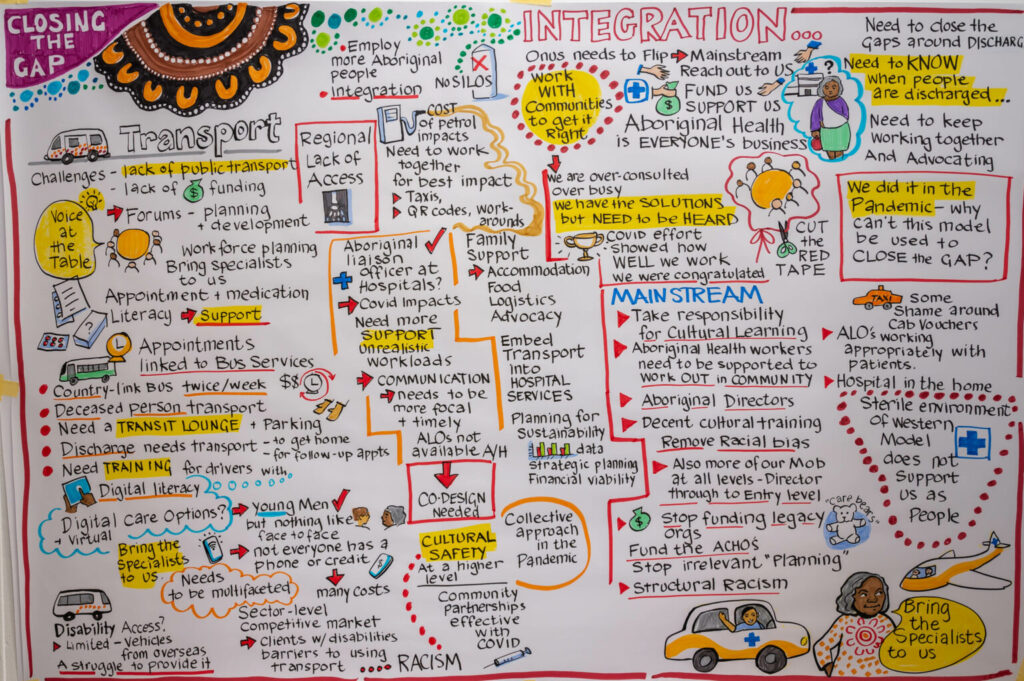 CLOSING
THE
GAP
Transport
Challenges - lack of public transport
- lack of $ funding
Voice
at
the
Table
Forums - planning
+ development
Workforce planning
Bring specialists
to us
Appointment + medication
Literacy → Support
Appointments
linked to Bus Services
Country-link BUS twice/week $$
Deceased person transport
Need a TRANSIT LOUNGE + Parking
Discharge needs transport - to get home
- for follow-up appts
Need TRAINING for drivers with
Digital literacy
Digital Care Options?
+ Virtual
Young Men
but nothing like
face to face
Bring the
Specialists
to us
not everyone has a
phone or credit
many costs
Needs
to be multifaceted
Sector-level
Competitive market
Clients w/ disabilities
barriers to using
transport .... RACISM
Disability Access?
Limited - Vehicles
from overseas
A struggle to provide it
Regional
Lack of
Access
Employ
more Aboriginal
people
Integration
No SILOS
COST
of petrol
impacts
Need to work
together
for best impact
Taxis,
QR codes, work-
arounds
Aboriginal
liaison
Officer at
Hospitals?
Covid Impacts
Need more
SUPPORT
unrealistic
workloads
COMMUNICATION
needs to be
more focal
+ timely
ALOs not
available A/H
CO-DESIGN
NEEDED
CULTURAL
SAFETY
At a higher
level
Community
Partnerships
effective
with
COVID
Family
Support
Accommodation
Food
Logistics
Advocacy
Embed
Transport
Into
HOSPITAL
SERVICES
Planning for
Sustainability
data
Strategic planning
Financial viability
Collective
approach
in the
Pandemic
INTEGRATION...
Onus needs to Flip → Mainstream
Reach out to US
FUND US
$
SUPPORT US
Aboriginal Health
is EVERYONE'S business
Work
WITH
Communities
to get it
Right
We are over-consulted
over busy
We have the SOLUTIONS
but NEED to be HEARD
COVID effort
showed how
WELL we work
We were congratulated
CUT
THE
RED
TAPE
?
Need to close the
Gaps around DISCHARG
Need to KNOW
when people
are discharged...
Need to keep
working together
And Advocating
We did it in the
Pandemic - why
can't this model
be used to
CLOSE the GAP?
MAINSTREAM
Take responsibility
for Cultural Learning
Aboriginal Health workers
need to be supported to
work OUT in COMMUNITY
Aboriginal Directors
Decent cultural training
Remove Racial bias
Also more of our Mob
at all levels - Director
through to Entry level
$ Stop funding legacy
orgs
Fund the ACHOs
Stop irrelevant "Planning"
Structural Racism
"Care bears"
TAXI
Some
Shame around
Cab Vouchers
ALO's working
appropriately with
patients.
Hospital in the home
Sterile environment
of Western
Model
does not
Support
us as
People
Bring
the
Specialists
to us